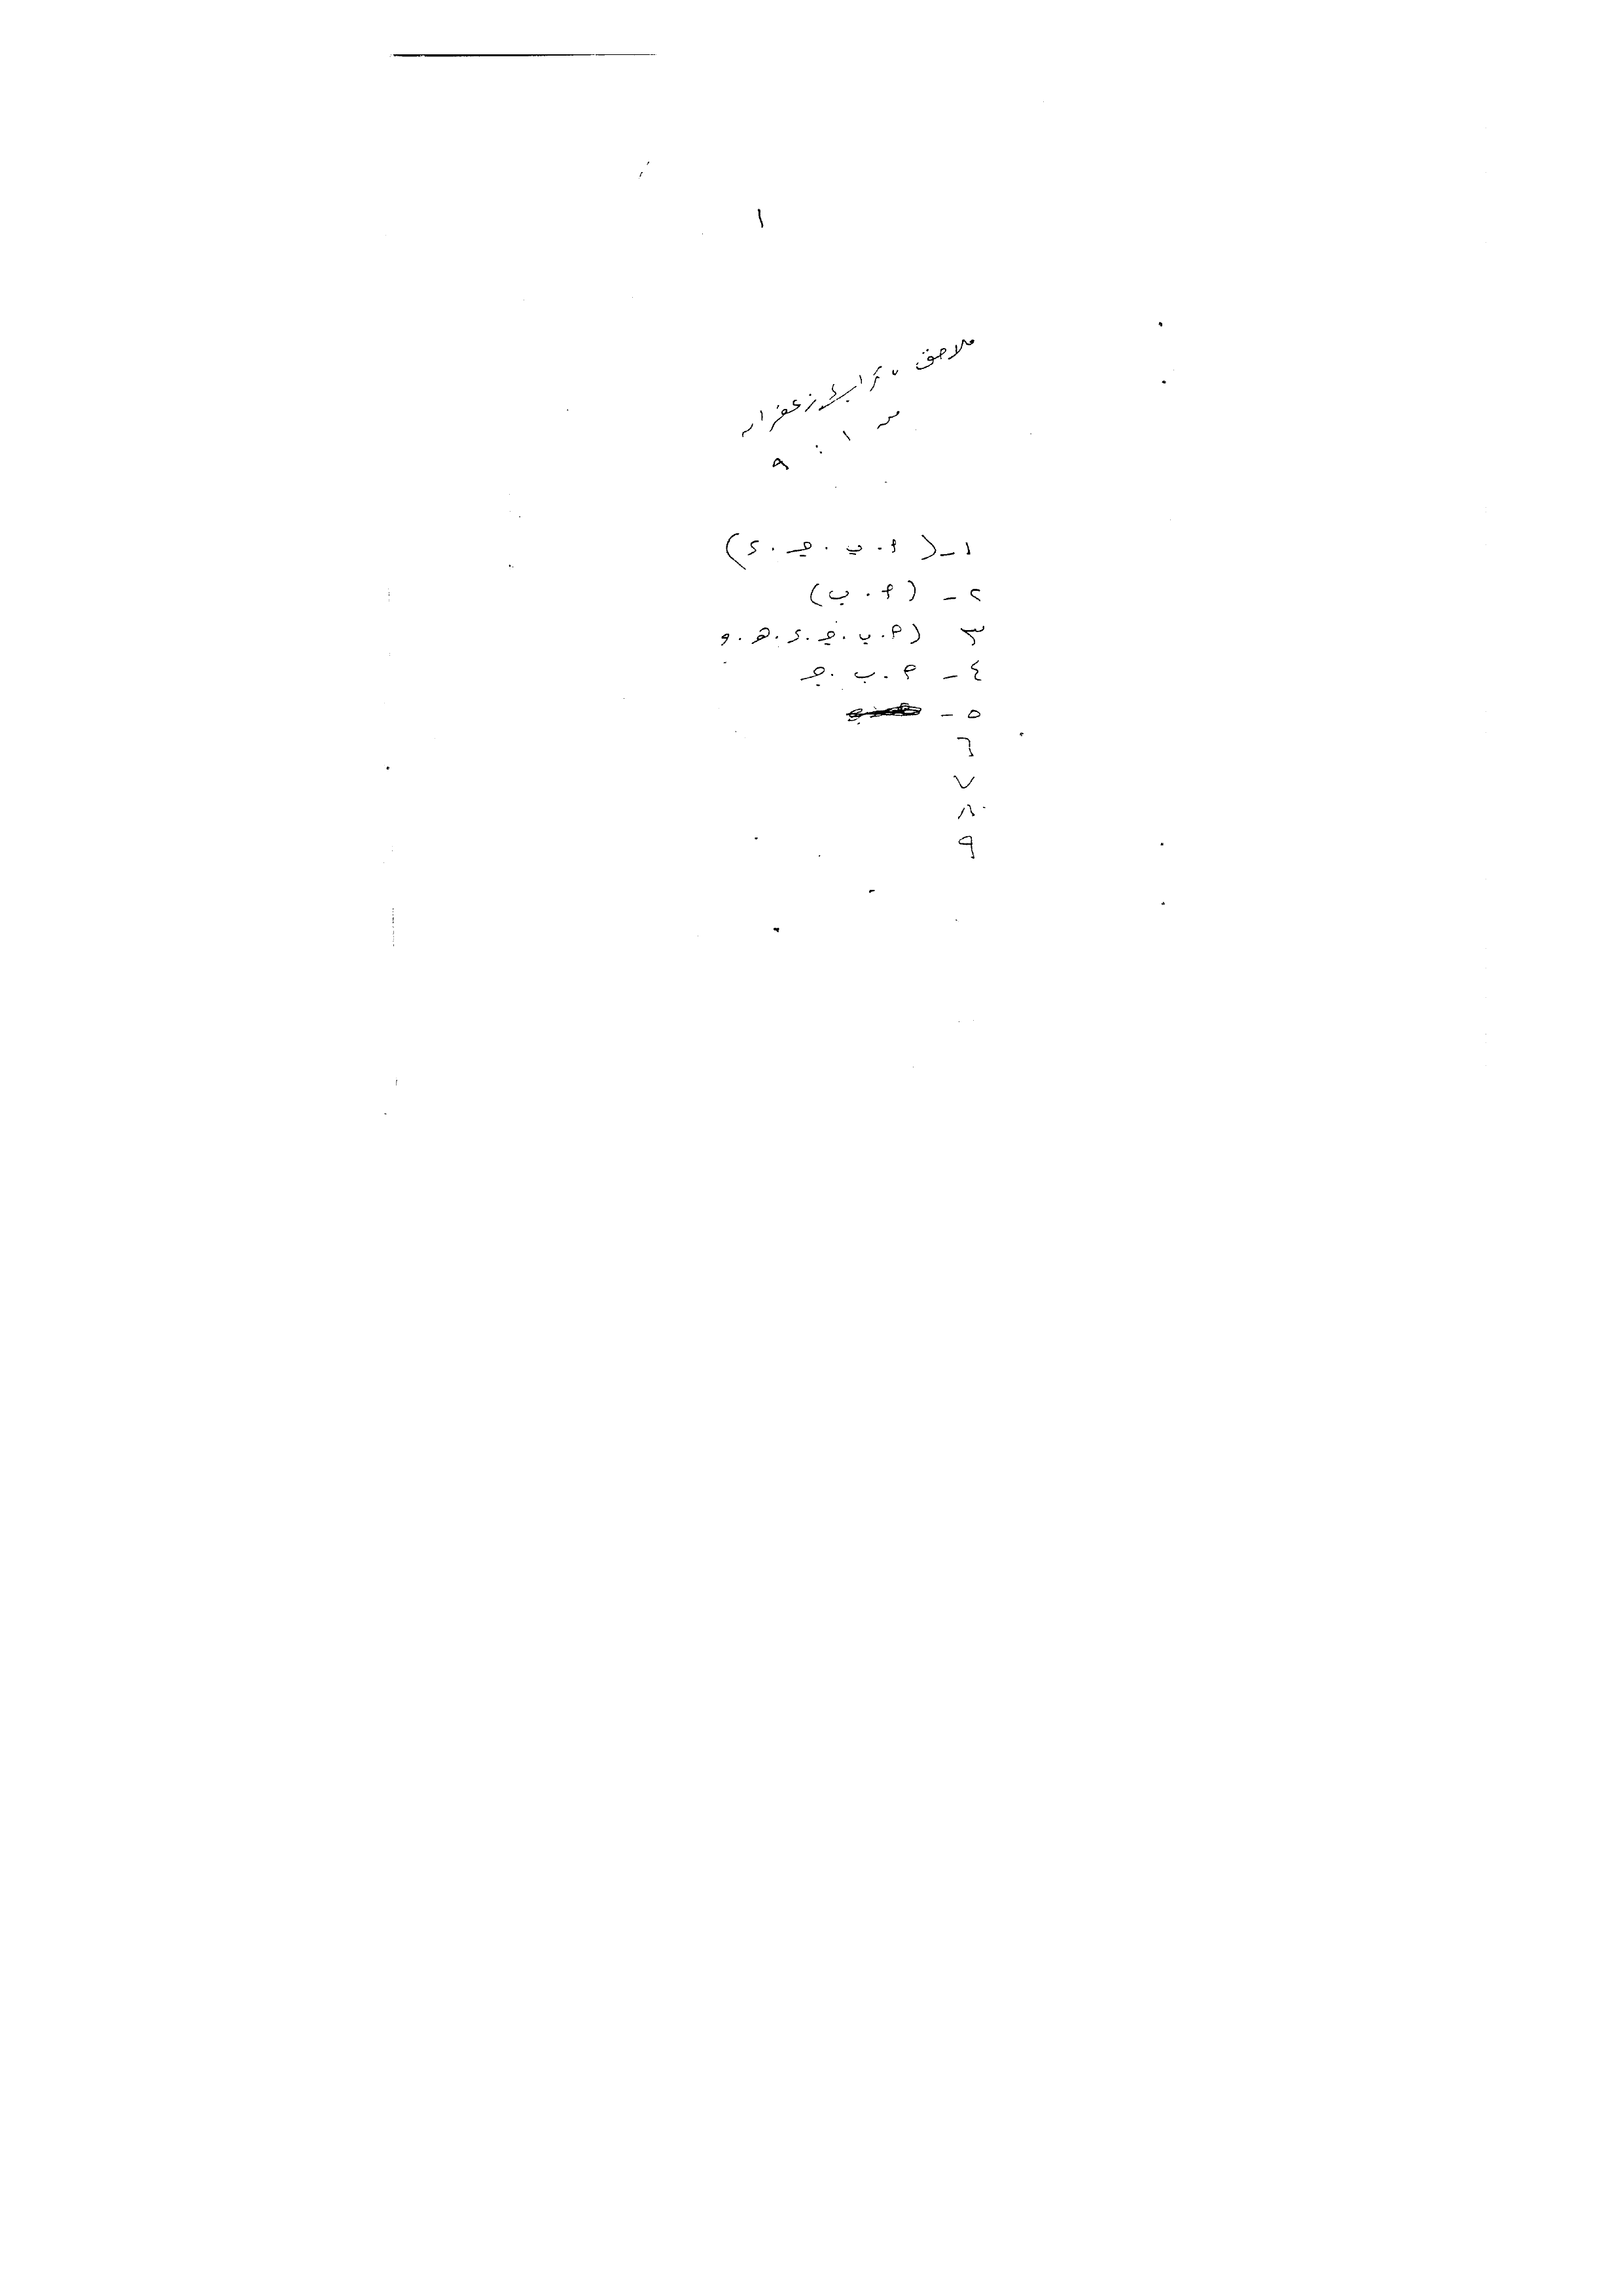 ١
ملاحق " ترابها زعفران
من ١ : ٩
١- ( أ . ب . جـ . د )
٢ - ( أ . ب )
٣ ( أ . ب . جـ . د . هـ . و
٤ - أ . ب . جـ
٥ -
٦
٧
٨
٩